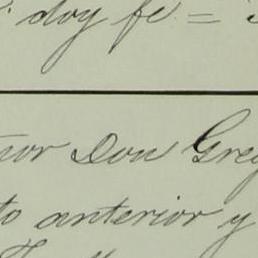 doy fe =
nor Don Greg
to anterior y